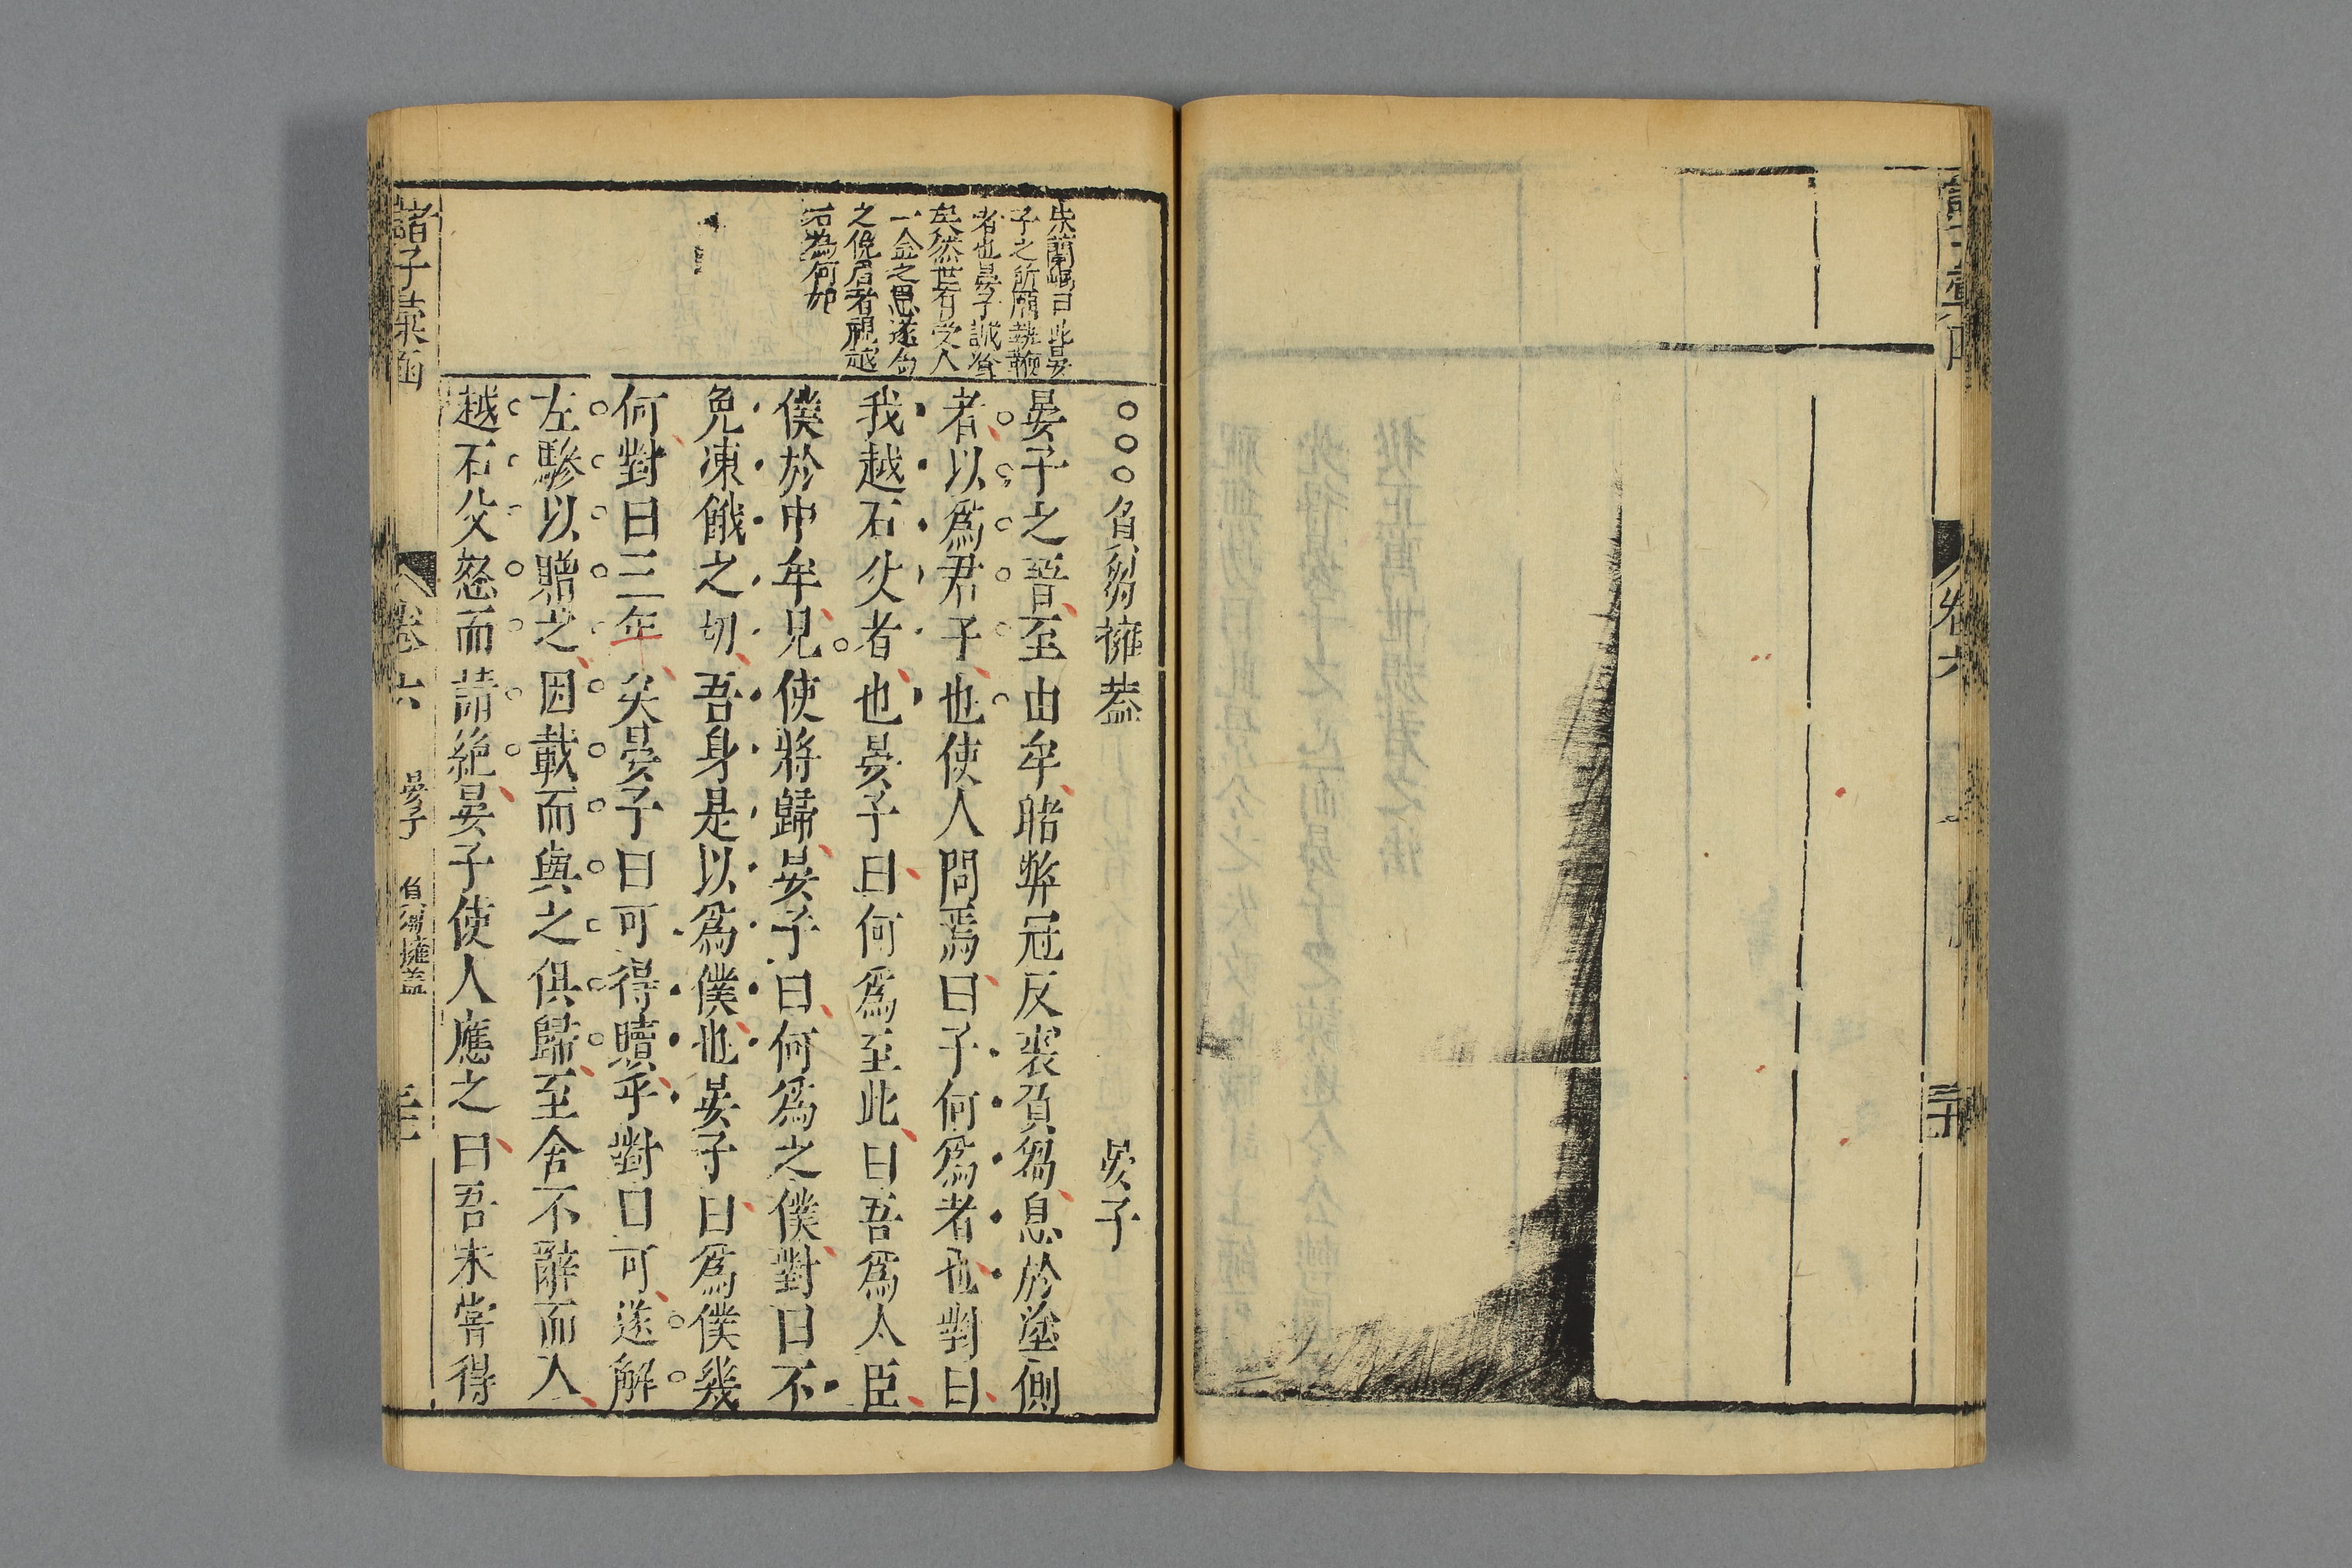 卷六
三十
朱蘭嵎曰此晏
子之所願執鞭
者也晏子誠賢
矣然世有受人
一金之恩遂爲
之俛眉者視越
石為何如
○○○負芻擁葢 晏子
晏子之晉至中牟睹弊冠反裘負芻息於塗側
者以爲君子也使人問焉曰子何爲者也對曰
我越石父者也晏子曰何爲至此曰吾爲人臣
僕於中牟見使將歸晏子曰何爲之僕對曰不
免凍餓之切吾身是以爲僕也晏子曰爲僕幾
何對曰三年矣晏子曰可得贖乎對曰可遂解
左驂以贈之因載而與之俱歸至舍不辭而入
越石父怒而請絶晏子使人應之曰吾未嘗得
諸子彙函 卷六 晏子 負芻擁盖